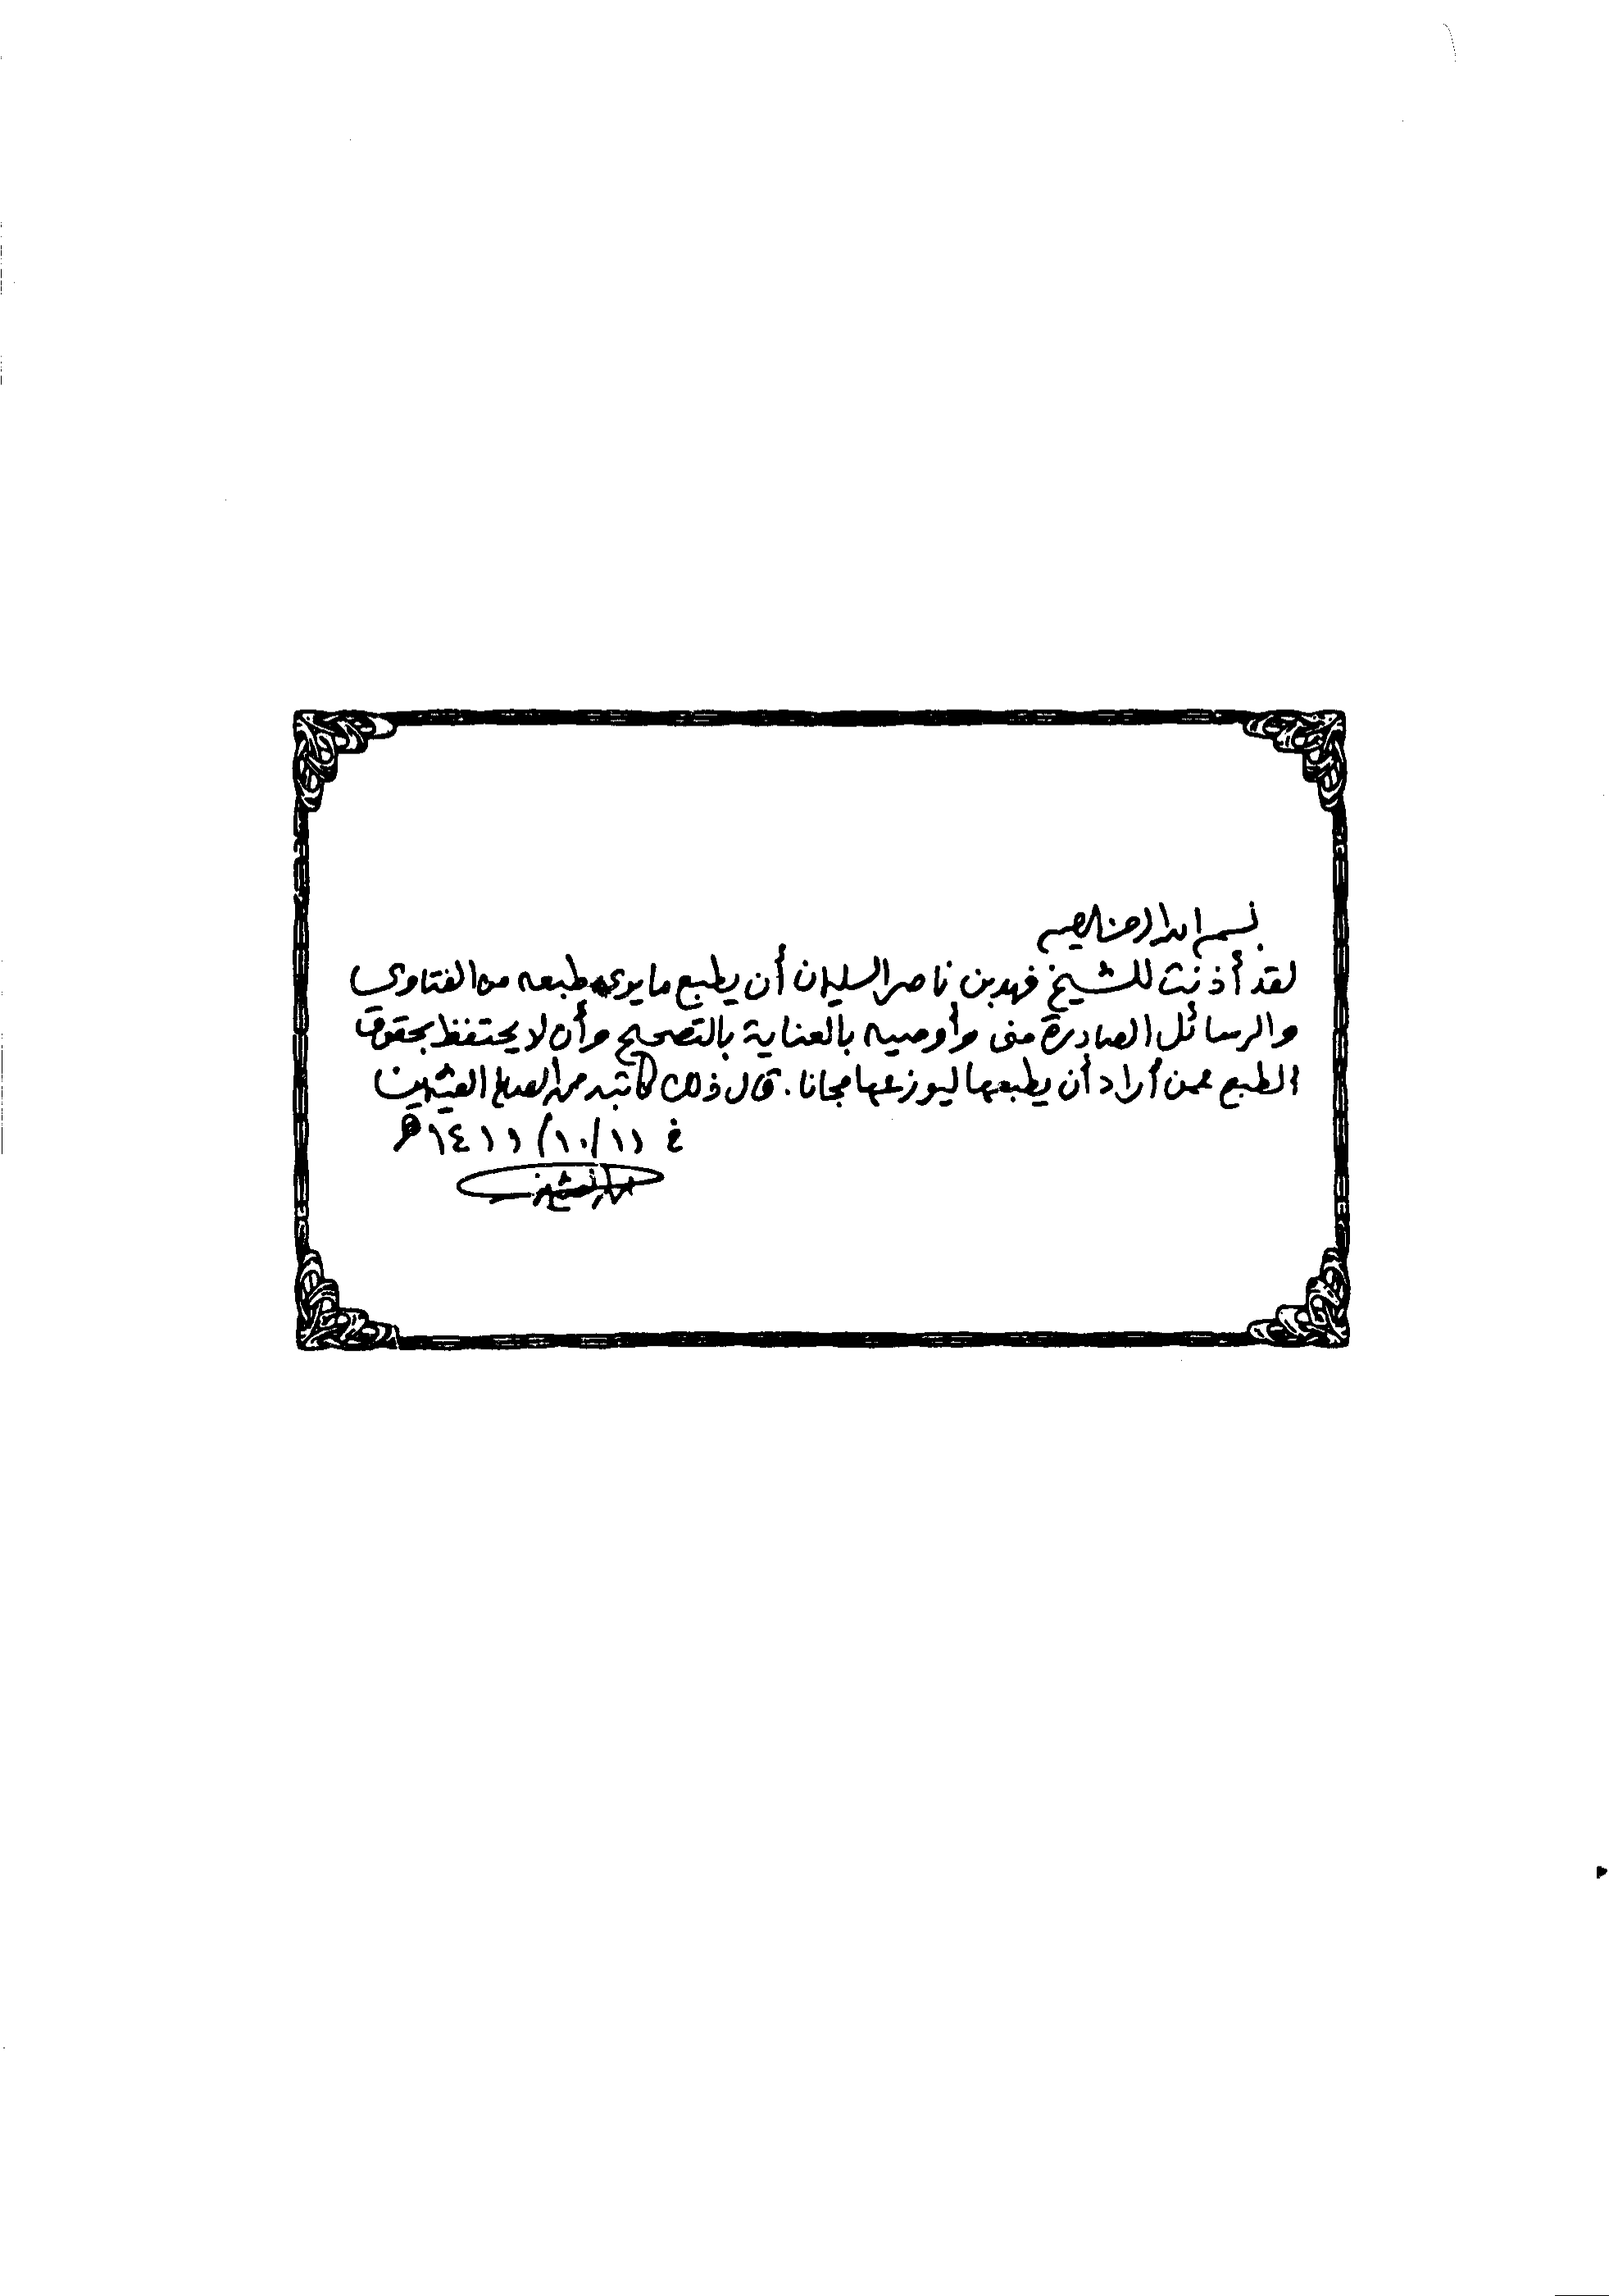 بسم الله الرحمن الرحيم
لقد أذنت للشيخ فهد بن ناصر السليمان أن يطبع ما يرى طبعه من الفتاوى
والرسائل الصادرة منى وأوصيه بالعناية بالتصحيح وأن لا يحتفظ بحقوق
الطبع عمن أراد أن يطبعها ليوزعها مجانا. قال ذلك كاتبه محمد الصالح العثيمين
في ١١/ ١٠/ ١٤١١ هـ
محمد العثيمين